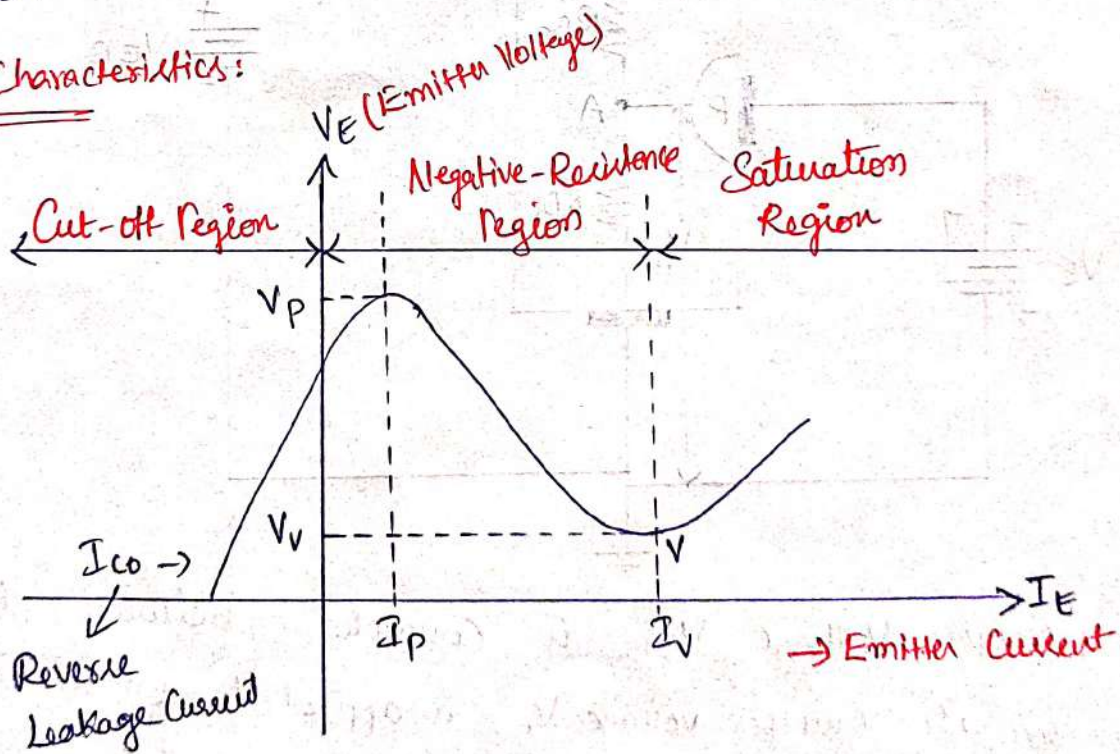 Characteristics:
VE (Emitter Voltage)
Cut-off region
Negative-Resistence
region
Saturation
Region
Vp
Vv
V
Ico →
Reverse
Leakage Current
Ip
Iv
IE
→ Emitter Current